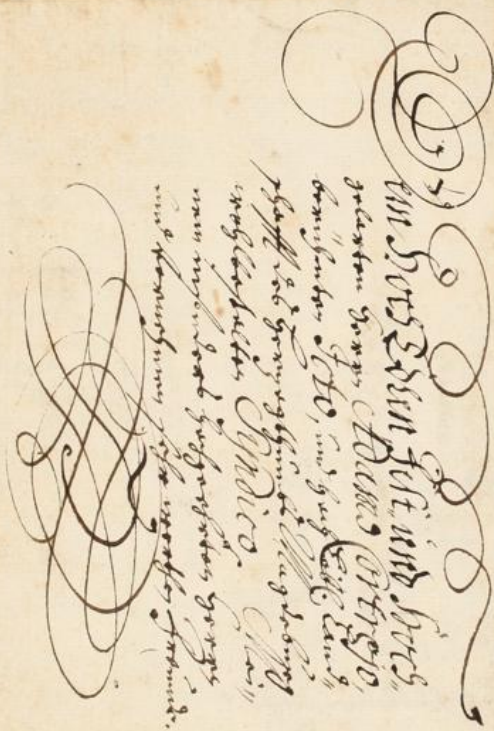 Dem HochEdlen Fest, und Hoch„
gelarten Herrn Adamo Cortrejo,
berühmten JCto, und Land„
schafft des Hertzogthumbs Magdeburg
wohlbestalten Syndico Mei„
nem insonders Hochgeehrten Herrn
und vornehmen sehr werthen Freund.